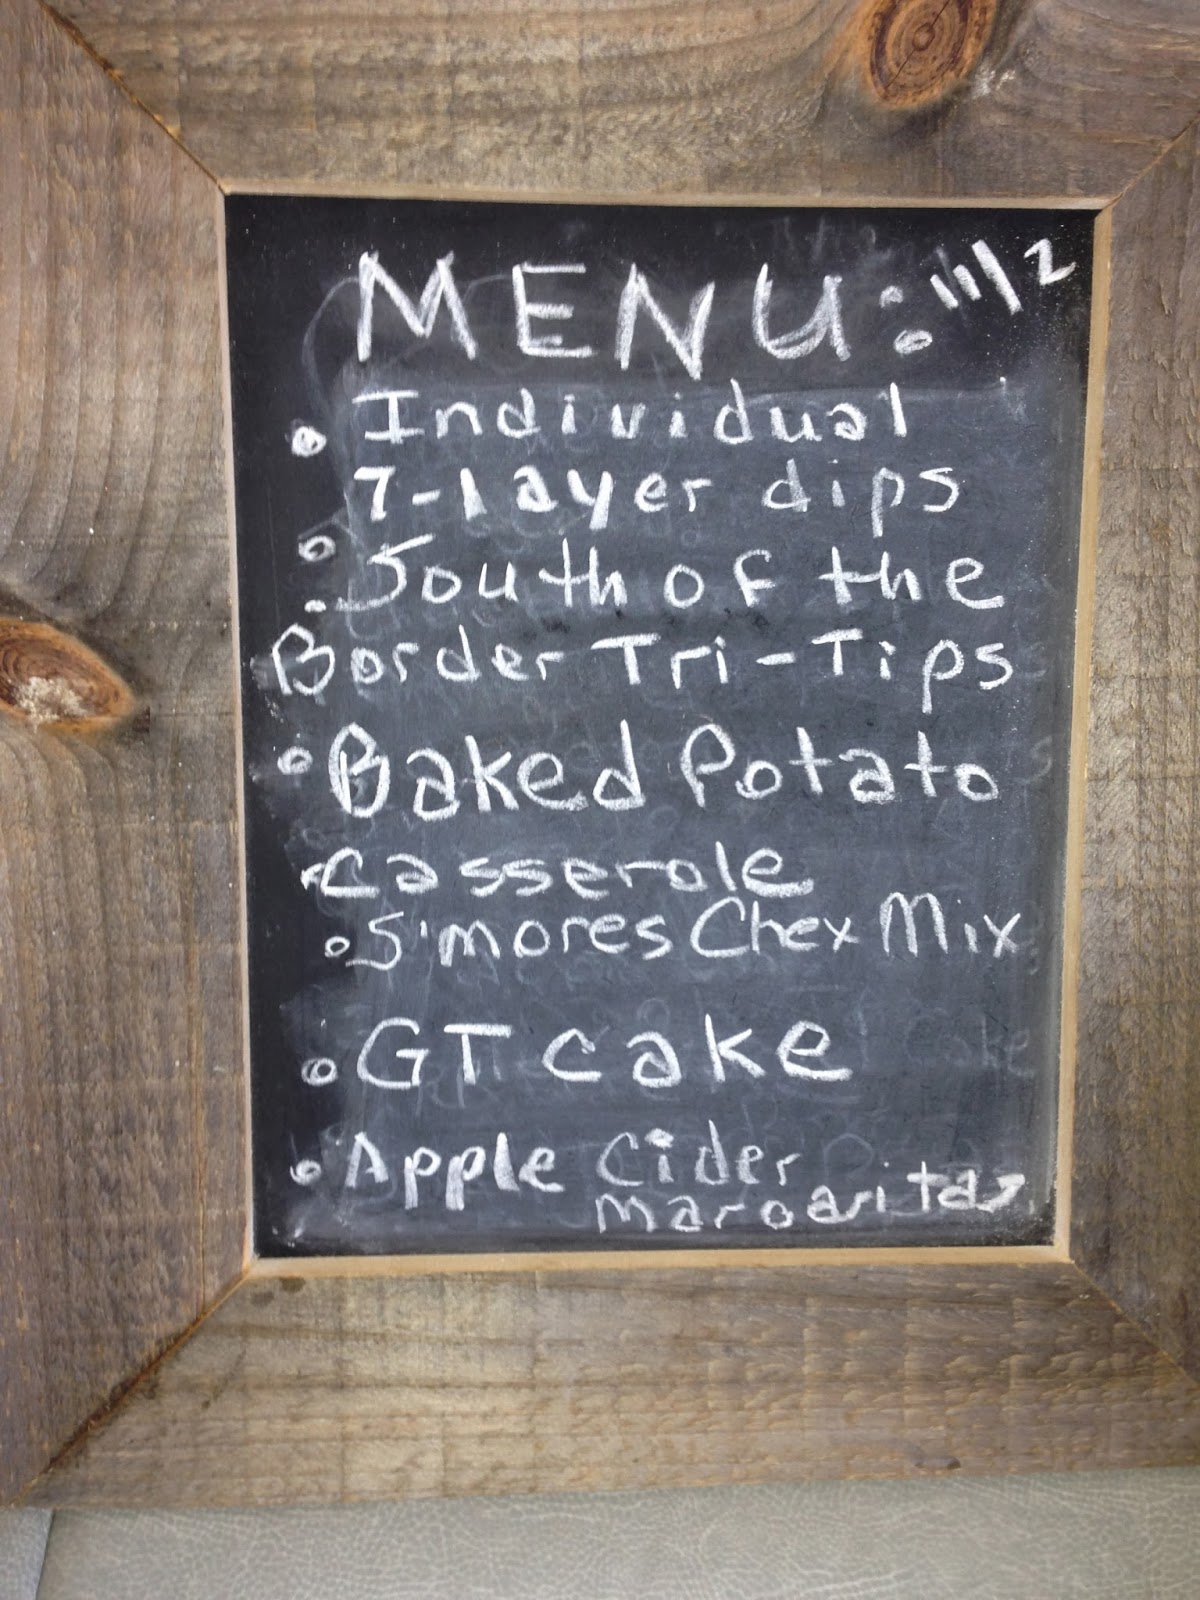 MENU: 11/2
• Individual
7-layer dips
• South of the
Border Tri-Tips
• Baked Potato
Casserole
• S'mores Chex Mix
• GT cake
• Apple Cider
margaritas